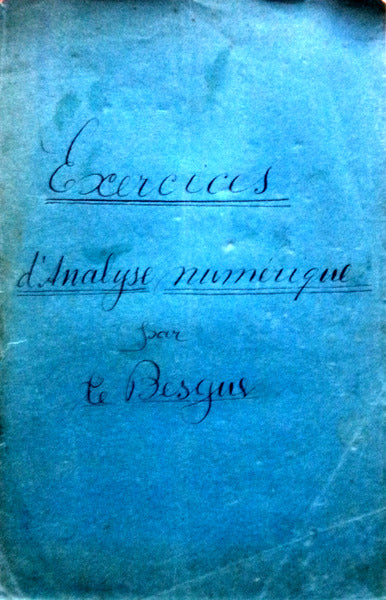 Exercices
d'Analyse numérique
par
Le Besgue